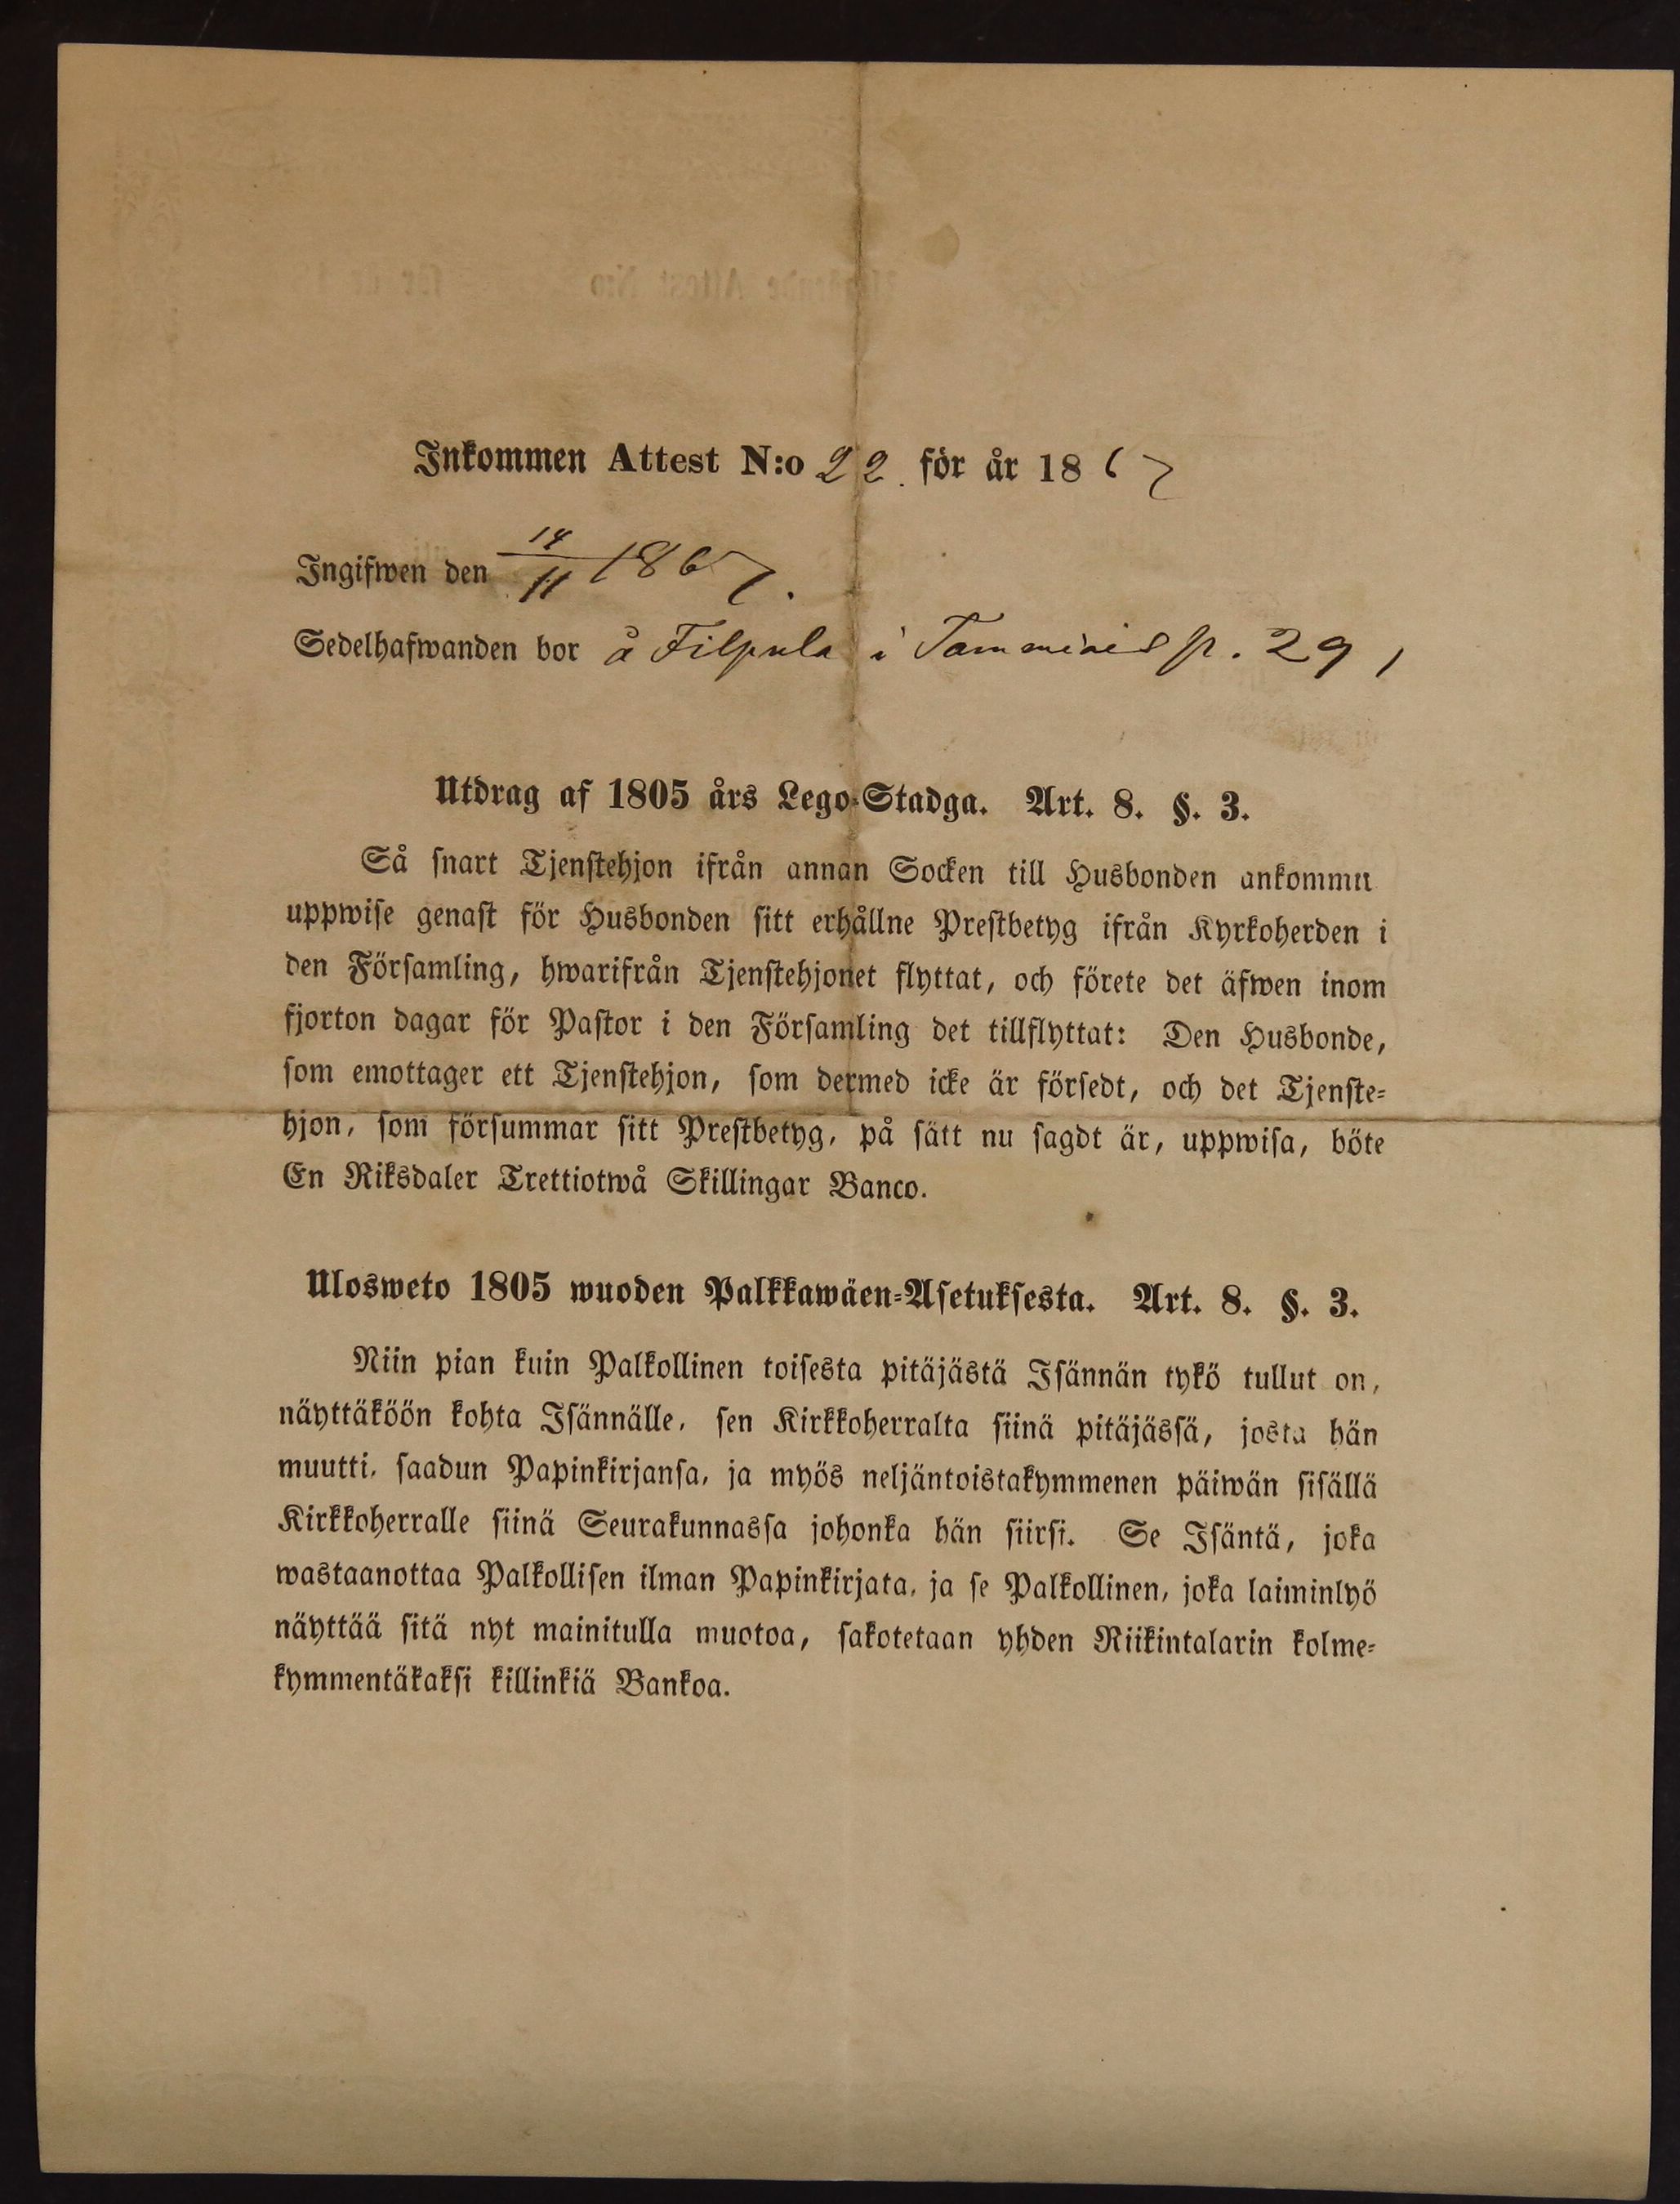 Inkommen Attest N:o 22. för år 1867
Ingifwen den 14/11 1867.
Sedelhafwanden bor å Filpula i p. 29
Utdrag af 1805 års Lego-Stadga. Art. 8. §. 3.
Så snart Tjenstehjon ifrån annan Socken till Husbonden ankommit
uppwise genast för Husbonden sitt erhållne Prestbetyg ifrån Kyrkoherden i
den Församling, hwarifrån Tjenstehjonet flyttat, och förete det äfwen inom
fjorton dagar för Pastor i den Församling det tillflyttat: Den Husbonde,
som emottager ett Tjenstehjon, som dermed icke är försedt, och det Tjenste-
hjon, som försummar sitt Prestbetyg, på sätt nu sagdt är, uppwisa, böte
En Riksdaler Trettiotwå Skillingar Banco.
Ulosweto 1805 wuoden Palkkawäen-Asetuksesta. Art. 8. §. 3.
Niin pian kuin Palkollinen toisesta pitäjästä Isännän tykö tullut on,
näyttäköön kohta Isännälle, sen Kirkkoherralta siinä pitäjässä, josta hän
muutti, saadun Papinkirjansa, ja myös neljäntoistakymmenen päiwän sisällä
Kirkkoherralle siinä Seurakunnassa johonka hän siirsi. Se Isäntä, joka
wastaanottaa Palkollisen ilman Papinkirjata, ja se Palkollinen, joka laiminlyö
näyttää sitä nyt mainitulla muotoa, sakotetaan yhden Riikintalarin kolme-
kymmentäkaksi killinkiä Bankoa.